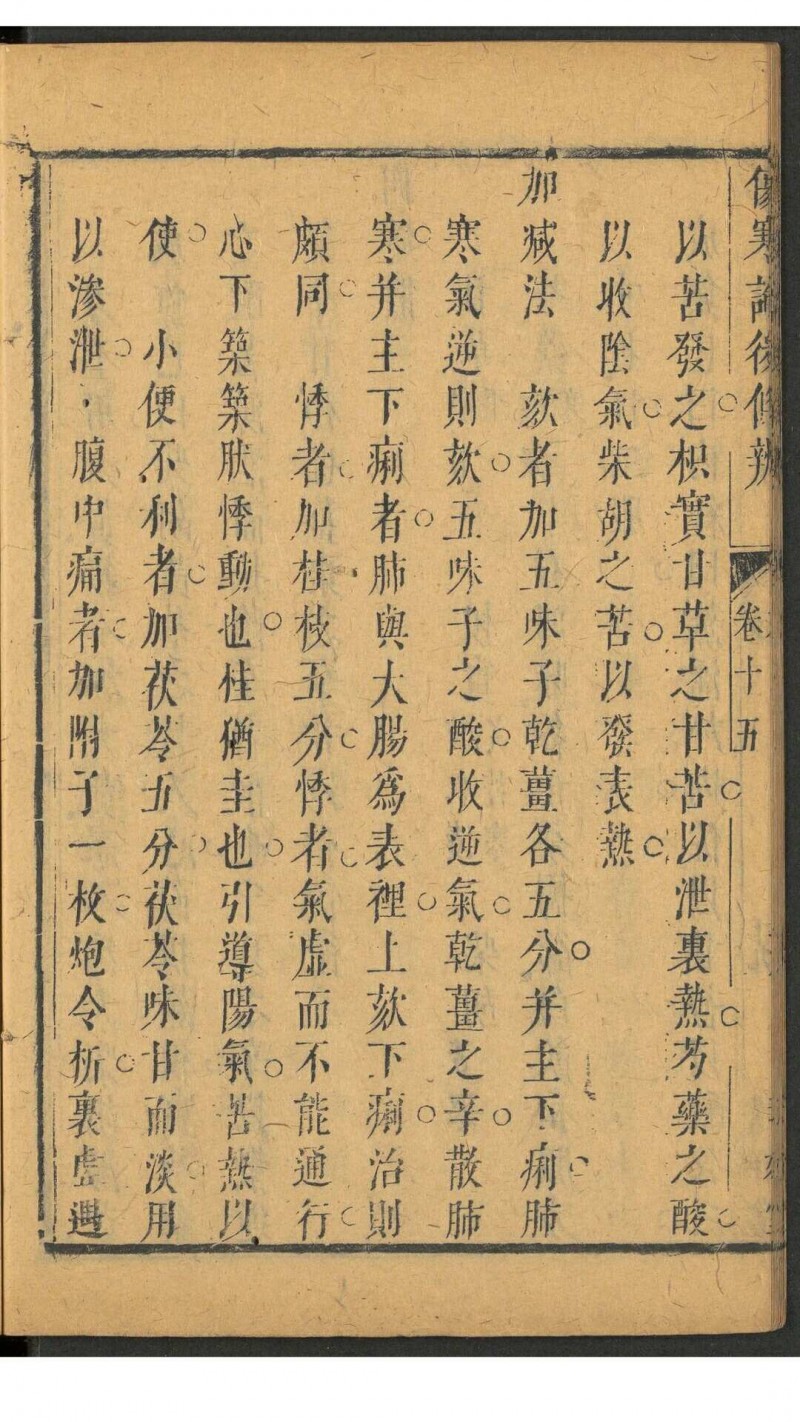 傷寒論後條辨 卷十五
以苦發之枳實甘草之甘苦以泄裏熱芍藥之酸
以收陰氣柴胡之苦以發表熱
加減法 欬者加五味子乾薑各五分并主下痢肺
寒氣逆則欬五味子之酸收逆氣乾薑之辛散肺
寒并主下痢者肺與大腸爲表裡上欬下痢治則
頗同 悸者加桂枝五分悸者氣虛而不能通行
心下築築肰悸動也桂猶圭也引導陽氣若熱以
使 小便不利者加茯苓五分茯苓味甘而淡用
以滲泄 腹中痛者加附子一枚炮令拆裏虛遇